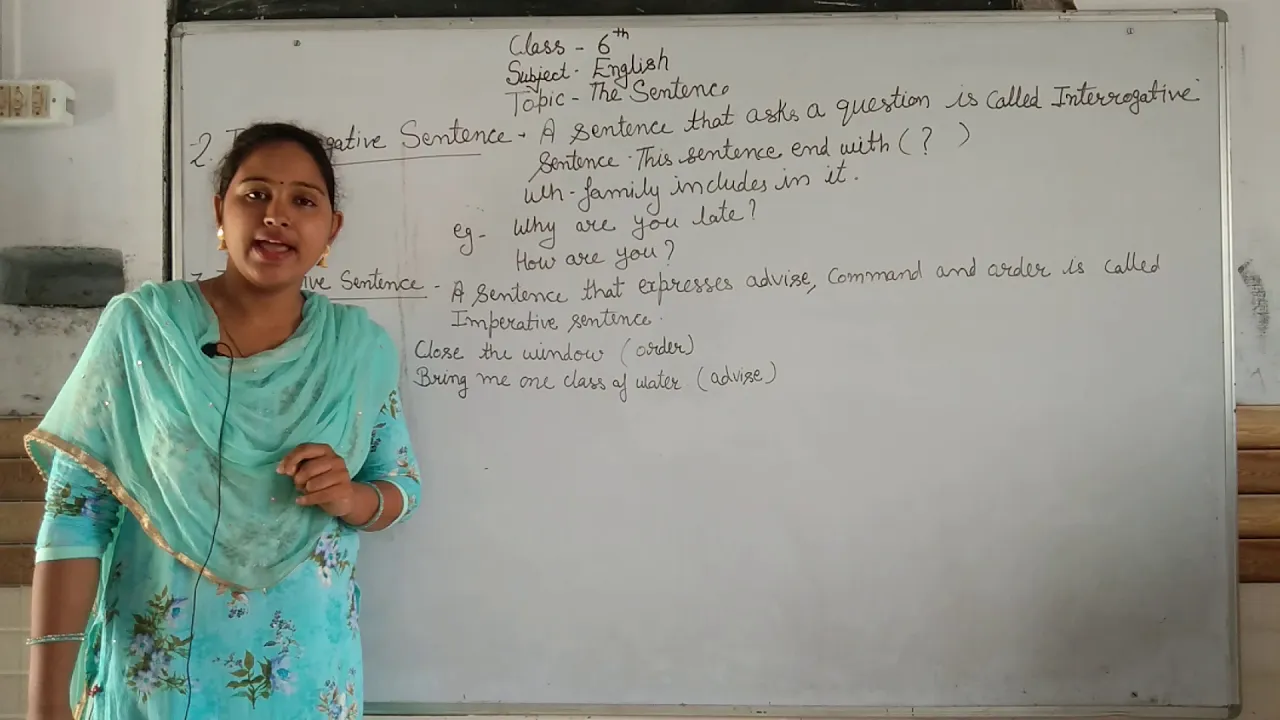 Class - 6th
Subject - English
Topic - The Sentence
2. gative Sentence - A sentence that asks a question is called Interrogative
Sentence. This sentence end with (?)
Wh-family includes in it.
eg- Why are you late?
How are you?
ive Sentence - A sentence that expresses advise, command and order is called
Imperative sentence.
Close the window (order)
Bring me one class of water (advise)